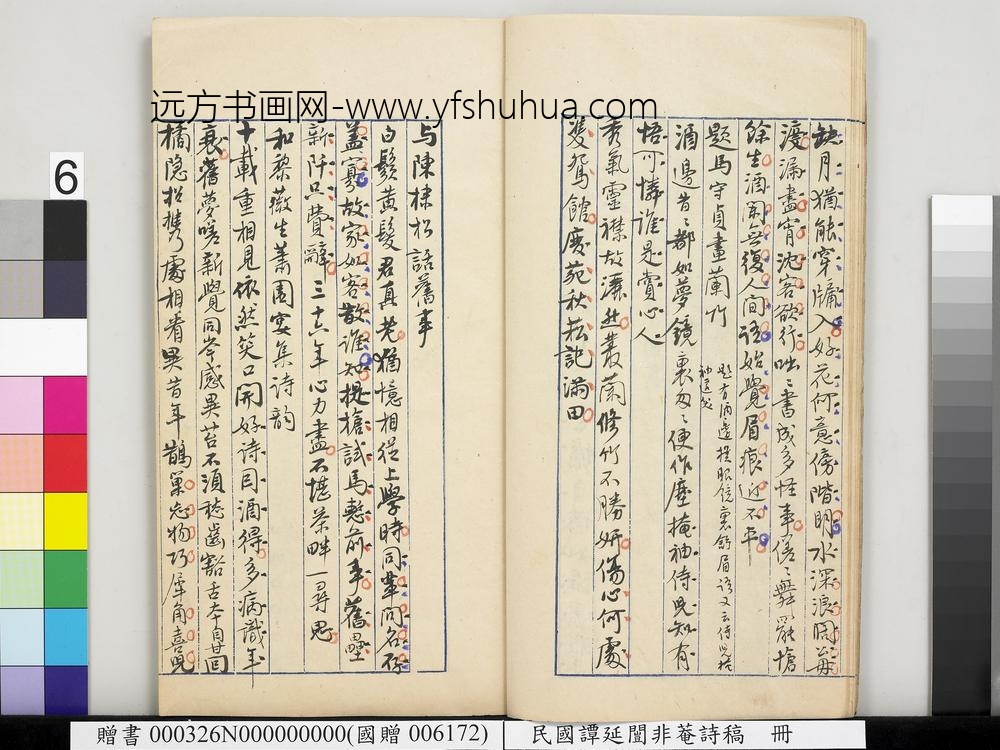 远方书画网-www.yfshuhua.com
缺月猶能穿牖入好花何意傍階明水深浪闊
漫漏盡宵沈客欲行咄〻書成多怪事
餘生酒闌無復人間語始覺眉痕近不平
題馬守貞畫蘭竹
酒邊昔〻都如夢鏡裏
便作塵掩袖侍兒知有
悟可憐誰是賞心人
秀氣靈襟故
叢蘭修竹不勝妍傷心何處
雙鴛館廢苑秋菘記滿田
与陳棣松話舊事
白鬚黃髮君真老猶憶相從上學時同輩問名存
蓋寡故家如客散誰知提槍試馬慙前事舊壘
新阡只費辭三十六年心力盡不堪茶畔一尋思
和黎薇生蕭園宴集詩韵
十載重相見依然笑口開好詩因酒得多病識年
衰舊夢嗟新覺同岑感異苔不須愁齒豁舌本自甘回
橘隱招携處相看異昔年鵲巢
物巧犀角喜兒
6
贈書 000326N000000000(國贈 006172)
民國譚延闓非菴詩稿 冊